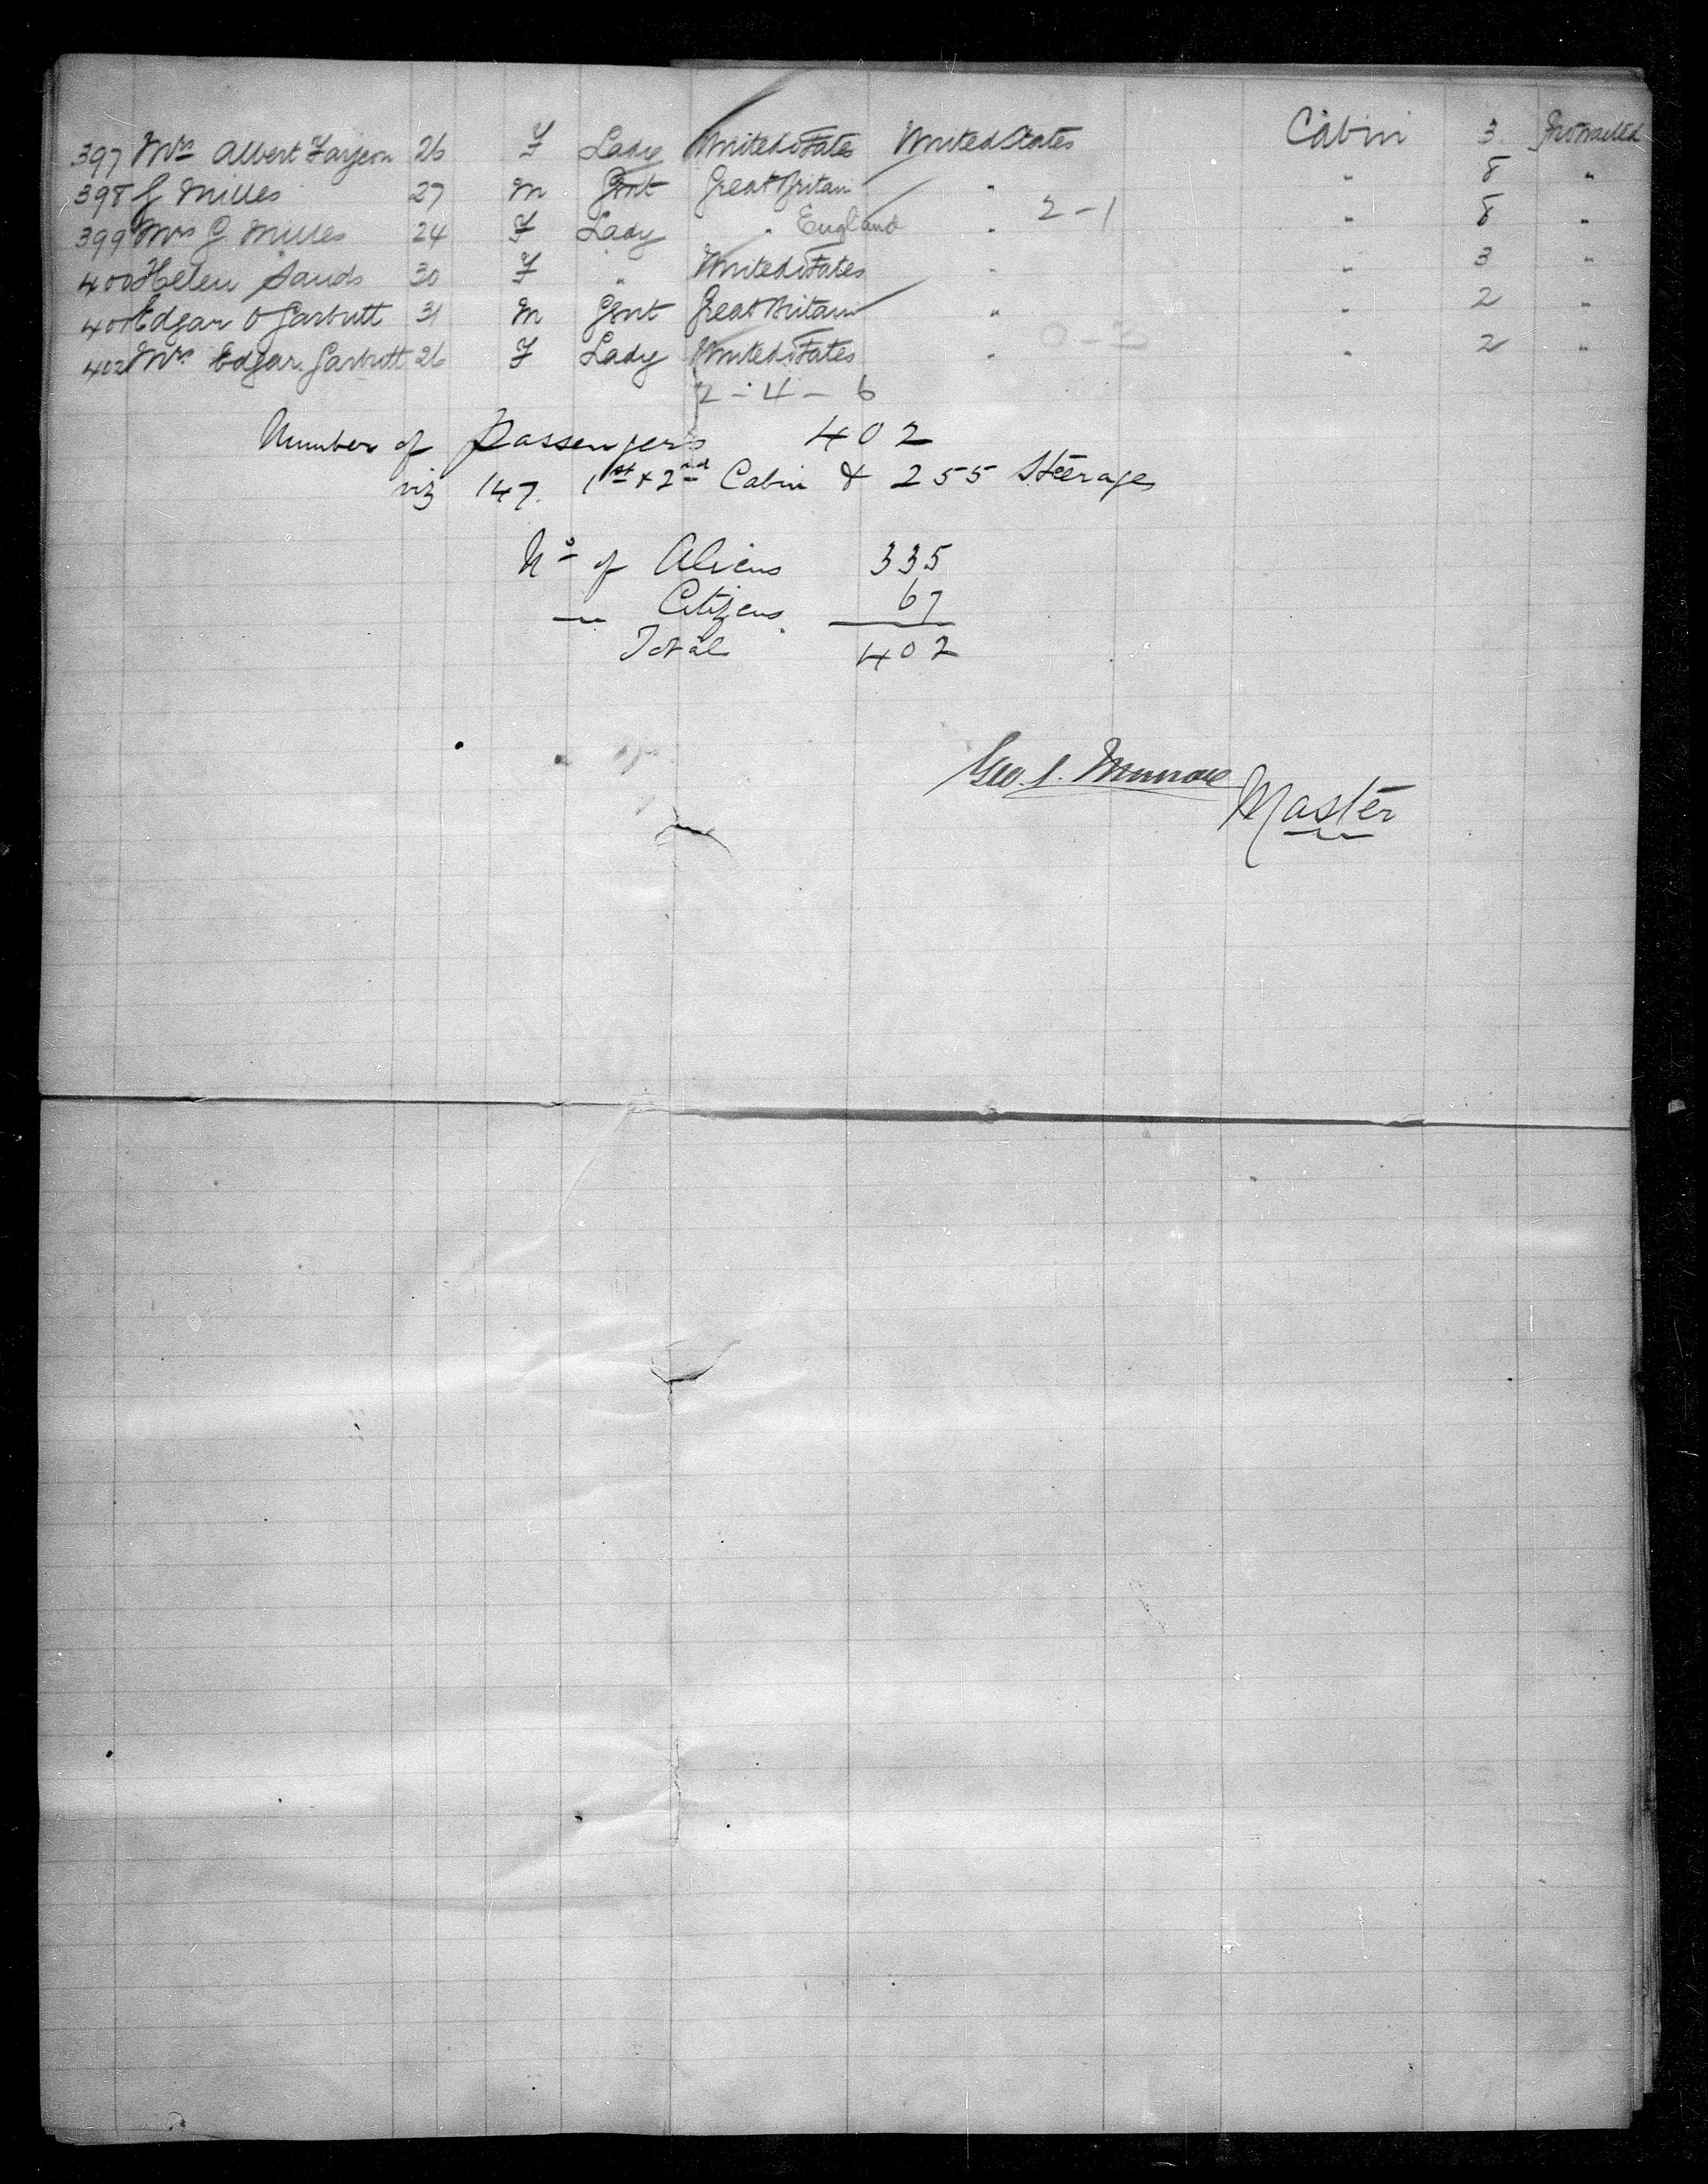 397 Mrs Albert Farjeon 26 F Lady United States United States Cabin 3 Protracted
398 G Milles 27 M Gent Great Britain " " 8 "
399 Mrs G. Milles 24 F Lady " England " 2-1 " 8 "
400 Helen Sands 30 F " United States " " 3 "
401 Edgar O Garbutt 31 M Gent Great Britain " " 2 "
402 Mrs Edgar Garbutt 26 F Lady United States " " 2 "
2-4-6
Number of Passengers 402
viz 147. 1st & 2nd Cabin & 255 Steerage
No of Aliens 335
" Citizens 67
Total 402
Geo. S. Munroe
Master